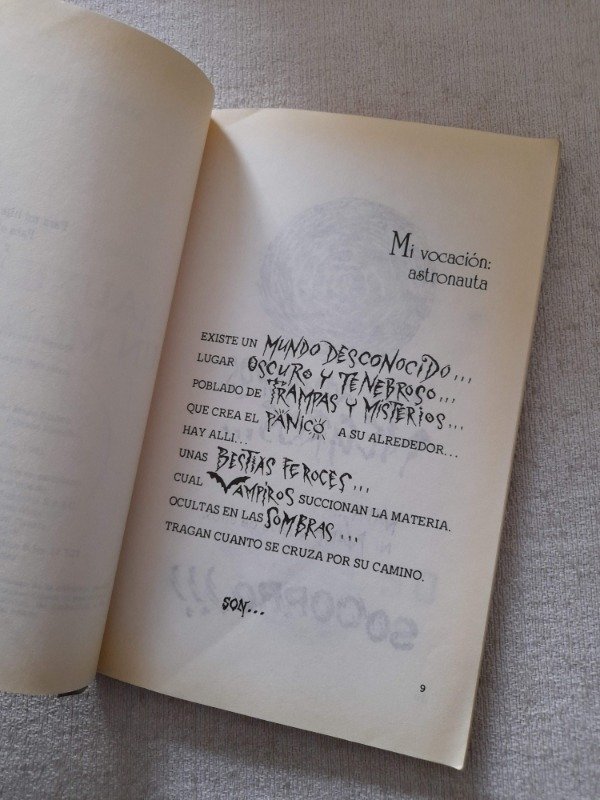 Mi vocación:
astronauta
EXISTE UN MUNDO DESCONOCIDO...
LUGAR OSCURO Y TENEBROSO...
POBLADO DE TRAMPAS Y MISTERIOS...
QUE CREA EL PÁNICO A SU ALREDEDOR...
HAY ALLI...
UNAS BESTIAS FEROCES...
CUAL VAMPIROS SUCCIONAN LA MATERIA.
OCULTAS EN LAS SOMBRAS...
TRAGAN CUANTO SE CRUZA POR SU CAMINO.
SON...
SOCORRO!!!
9